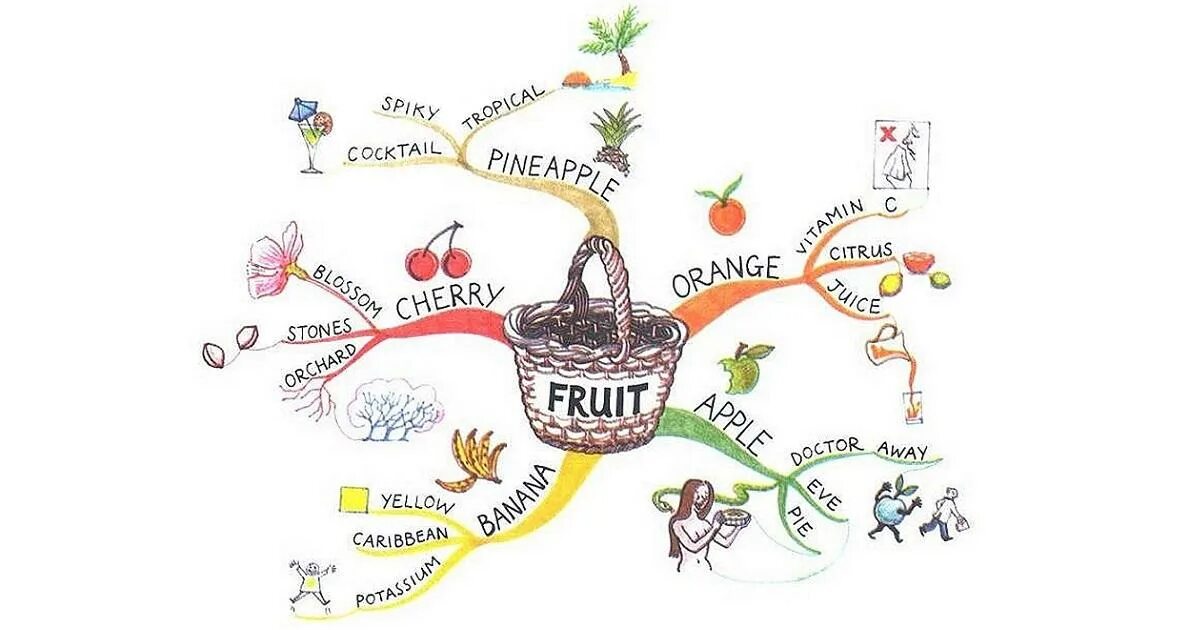 SPIKY
TROPICAL
COCKTAIL
PINEAPPLE
X
VITAMIN C
ORANGE
CITRUS
JUICE
BLOSSOM
CHERRY
STONES
ORCHARD
FRUIT
APPLE
DOCTOR AWAY
EVE
PIE
BANANA
YELLOW
CARIBBEAN
POTASSIUM